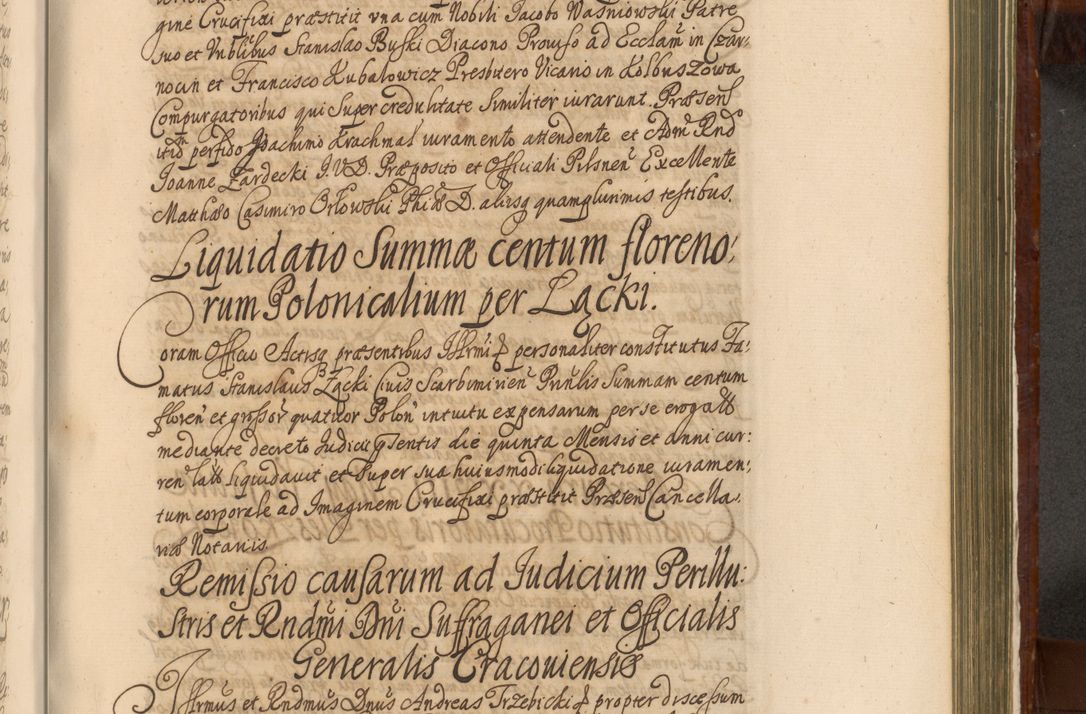 gine Crucifixi præstitit vna cum Nobili Jacobo Waśniowski Patre
suo et Vnblibus Stanislao Buski Diacono Prouiso ad Ecclam in Czar:
nocin et Francisco Kubalowicz Presbitero Vicario in Kolbuszowa
Compurgatoribus qui Super credulitate Similiter iurarunt. Præsenŝ
itid perfido Joachimo Krachmal iuramento attendente et Admˢ Rndᵒ
Joanne Zardecki J.V.D. Præposito et Officiali Pilsneñ Excellente
Matthæo Casimiro Orłowski Phiæ D. aliisq quamplurimis testibus.
Liquidatio Summæ centum floreno:
rum Polonicalium per Łącki.
Coram Officio Actisq præsentibus Illrmi personaliter constitutus Fa:
matus Stanislaus Łącki Ciuis Scarbimirieñ Prinlis Summam centum
floreñ et grossoř quatuor Poloñ intuitu expensarum per se erogatt
mediante decreto Judicii ptentis die quinta Mensis et anni cur:
ren latt liquidauit et Super sua huiusmodi liquidatione iuramen:
tum corporale ad Imaginem Crucifixi præstitit Præsenŝ Cancella:
riæ Notariis.
Remissio causarum ad Judicium Perillu:
stris et Rndmi Dni Suffraganei et Officialis
Generalis Cracouiensis
Illrmus et Rndmus Dnus Andreas Trzebicki propter discessum